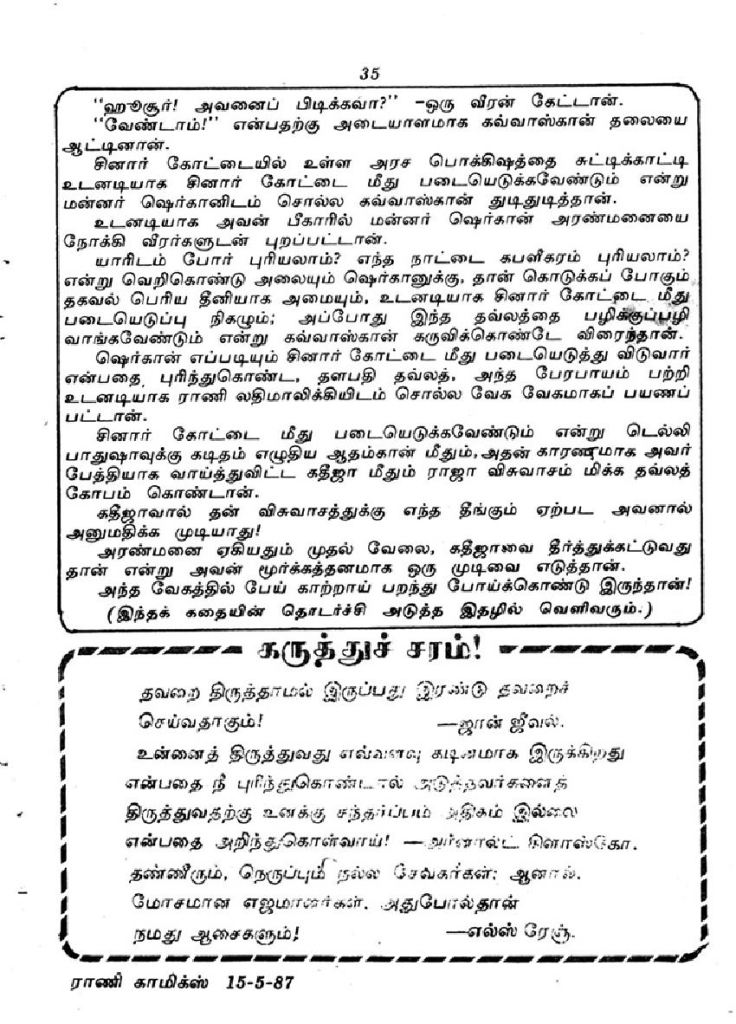 35
"ஹூசூர்! அவனைப் பிடிக்கவா?" -ஒரு வீரன் கேட்டான்.
"வேண்டாம்!" என்பதற்கு அடையாளமாக கவ்வாஸ்கான் தலையை
ஆட்டினான்.
சினார் கோட்டையில் உள்ள அரச பொக்கிஷத்தை சுட்டிக்காட்டி
உடனடியாக சினார் கோட்டை மீது படையெடுக்கவேண்டும் என்று
மன்னர் ஷெர்கானிடம் சொல்ல கவ்வாஸ்கான் துடிதுடித்தான்.
உடனடியாக அவன் பீகாரில் மன்னர் ஷெர்கான் அரண்மனையை
நோக்கி வீரர்களுடன் புறப்பட்டான்.
யாரிடம் போர் புரியலாம்? எந்த நாட்டை கபளீகரம் புரியலாம்?
என்று வெறிகொண்டு அலையும் ஷெர்கானுக்கு, தான் கொடுக்கப் போகும்
தகவல் பெரிய தீனியாக அமையும், உடனடியாக சினார் கோட்டை மீது
படையெடுப்பு நிகழும்; அப்போது இந்த தவ்லத்தை பழிக்குப்பழி
வாங்கவேண்டும் என்று கவ்வாஸ்கான் கருவிக்கொண்டே விரைந்தான்.
ஷெர்கான் எப்படியும் சினார் கோட்டை மீது படையெடுத்து விடுவார்
என்பதை புரிந்துகொண்ட, தளபதி தவ்லத், அந்த பேரபாயம் பற்றி
உடனடியாக ராணி லதிமாலிக்கியிடம் சொல்ல வேக வேகமாகப் பயணப்
பட்டான்.
சினார் கோட்டை மீது படையெடுக்கவேண்டும் என்று டெல்லி
பாதுஷாவுக்கு கடிதம் எழுதிய ஆதம்கான் மீதும், அதன் காரணமாக அவர்
பேத்தியாக வாய்த்துவிட்ட கதீஜா மீதும் ராஜா விசுவாசம் மிக்க தவ்லத்
கோபம் கொண்டான்.
கதீஜாவால் தன் விசுவாசத்துக்கு எந்த தீங்கும் ஏற்பட அவனால்
அனுமதிக்க முடியாது!
அரண்மனை ஏகியதும் முதல் வேலை, கதீஜாவை தீர்த்துக்கட்டுவது
தான் என்று அவன் மூர்க்கத்தனமாய் ஒரு முடிவை எடுத்தான்.
அந்த வேகத்தில் பேய் காற்றாய் பறந்து போய்க்கொண்டு இருந்தான்!
(இந்தக் கதையின் தொடர்ச்சி அடுத்த இதழில் வெளிவரும்.)
கருத்துச் சரம்!
தவறை திருத்தாமல் இருப்பது இரண்டு தவறைச்
செய்வதாகும்! —ஜான் ஜீவல்.
உன்னைத் திருத்துவது எவ்வளவு கடினமாக இருக்கிறது
என்பதை நீ புரிந்துகொண்டால் அடுத்தவர்களைத்
திருத்துவதற்கு உனக்கு சந்தர்ப்பம் அதிகம் இல்லை
என்பதை அறிந்துகொள்வாய்! —அர்னால்ட்
தண்ணீரும், நெருப்பும் நல்ல சேவகர்கள்; ஆனால்,
மோசமான எஜமானர்கள். அதுபோல்தான்
நமது ஆசைகளும்! —எல்ஸ் ரேஞ்.
ராணி காமிக்ஸ் 15-5-87